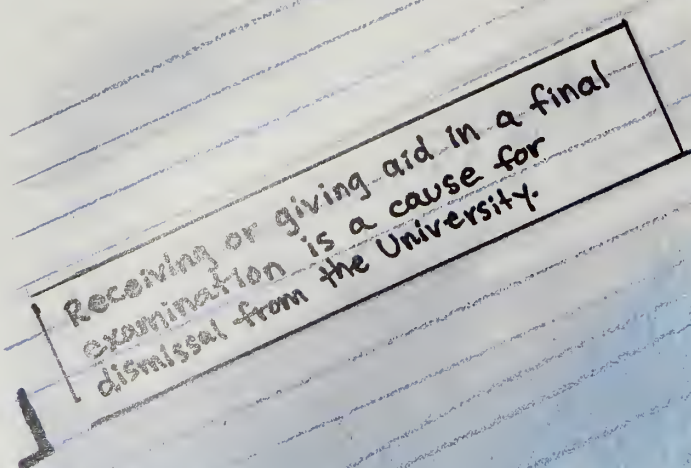 Receiving or giving aid in a final
examination is a cause for
dismissal from the University.